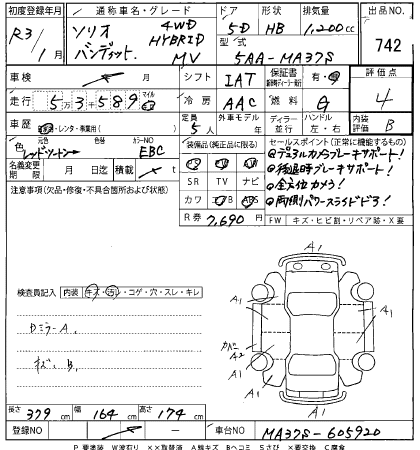 初度登録年月 通称車名・グレード ドア 形状 排気量 出品NO.
R3/1月 ソリオ バンディット 4WD HYBRID MV 5D HB 1,200cc 742
型式 5AA-MA37S
車検 年 月 シフト IAT 保証書 有・無 評価点
走行 53589 マイル km 冷房 AAC 燃料 G 4
車歴 自家用・レンタ・事業用( ) 定員 5人 外車モデル 年 ディーラー 並行 ハンドル 左・右 内装評価 B
色 元色 色替 カラーNO EBC 装備品(純正品に限る) セールスポイント(正常に機能するもの)
名義変更期限 月 日迄 積載 t
①デュアルカメラブレーキサポート!
②後退時ブレーキサポート!
③全方位カメラ!
④両側パワースライドドア!
SR TV ナビ
カワ エアB ABS
R券 7,690円 FW キズ・ヒビ割・リペア跡・X要
注意事項(欠品・修復・不具合箇所および状態)
検査員記入 内装 キズ・汚レ・コゲ・穴・スレ・キレ
DミラーA.
キズ. B.
A1
A1 A1
カバー A2
A1
A1 A1
A1
長さ 379cm 幅 164cm 高さ 174cm
登録NO 車台NO MA37S-605920
P 要塗装 W波有り ××取替済 A線キズ Bヘコミ Sさび ×要交換 C腐食